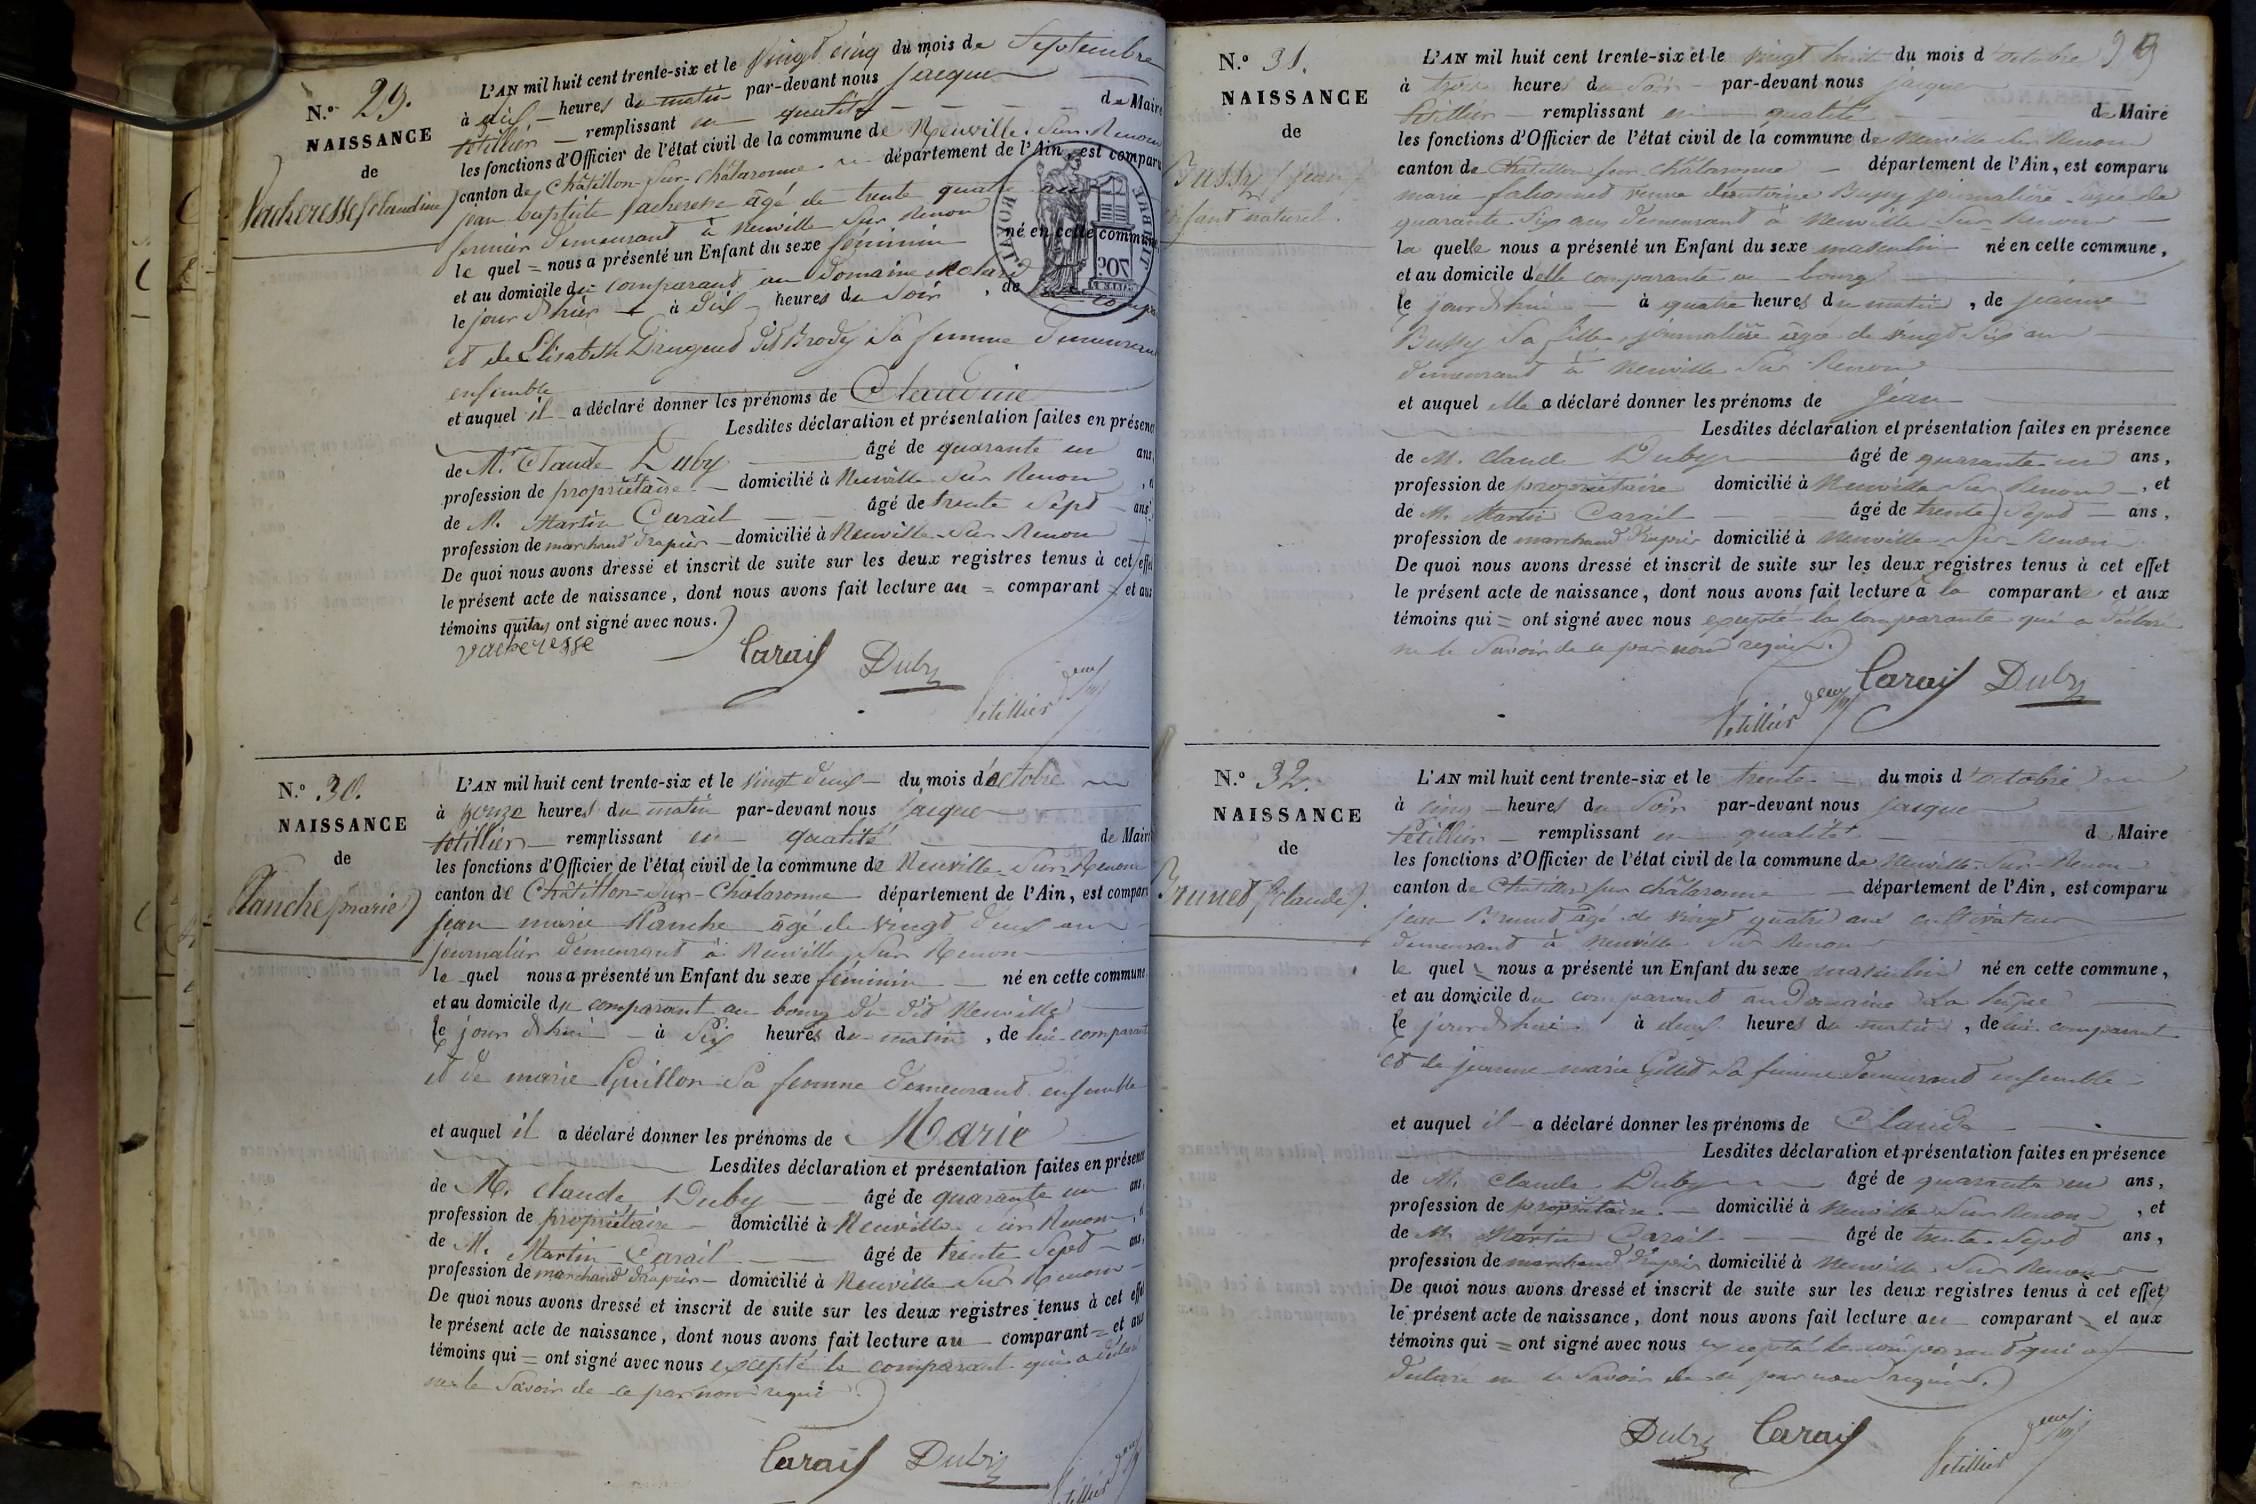 N.º 29.
NAISSANCE
de
Vacheresse (Claudine)
L'AN mil huit cent trente-six et le vingt cinq du mois de Septembre
à dix heures du matin par-devant nous jacque
Petillier remplissant en qualité de Maire
les fonctions d'Officier de l'état civil de la commune de Neuville-Sur-Renom
canton de Châtillon-Sur-Châlaronne département de l'Ain, est comparu
jean baptiste Vacheresse âgé de trente quatre ans
fermier demeurant à Neuville Sur Renom
le quel = nous a présenté un Enfant du sexe féminin né en cette commune
et au domicile du comparant au Domaine
le jour d'hier à dix heures du Soir, de
et de Elisabeth dit Brody Sa femme demeurant
ensemble
et auquel il a déclaré donner les prénoms de Claudine
Lesdites déclaration et présentation faites en présence
de Mr. Claude Duby âgé de quarante un ans,
profession de propriétaire domicilié à Neuville Sur Renom
de M. Martin Carail âgé de trente Sept ans
profession de marchand drapier domicilié à Neuville Sur Renom
De quoi nous avons dressé et inscrit de suite sur les deux registres tenus à cet effet
le présent acte de naissance, dont nous avons fait lecture au = comparant = et aux
témoins qui tous ont signé avec nous.
vacheresse
Carail Duby
Petillier
N.º 30.
NAISSANCE
de
Planche (marie)
L'AN mil huit cent trente-six et le vingt deux du mois d'octobre
à onze heures du matin par-devant nous jacque
Petillier remplissant en qualité de Maire
les fonctions d'Officier de l'état civil de la commune de Neuville-Sur-Renom
canton de Châtillon-Sur-Châlaronne département de l'Ain, est comparu
jean marie Planche âgé de vingt deux ans
journalier demeurant à Neuville Sur Renom
le quel nous a présenté un Enfant du sexe féminin né en cette commune
et au domicile du comparant au bourg du dit Neuville
le jour d'hui à Six heures du matin, de lui comparant
et de marie Guillon Sa femme demeurant ensemble
et auquel il a déclaré donner les prénoms de Marie
Lesdites déclaration et présentation faites en présence
de M. Claude Duby âgé de quarante un ans,
profession de propriétaire domicilié à Neuville Sur Renom
de M. Martin Carail âgé de trente Sept ans,
profession de marchand drapier domicilié à Neuville Sur Renom
De quoi nous avons dressé et inscrit de suite sur les deux registres tenus à cet effet
le présent acte de naissance, dont nous avons fait lecture au comparant = et aux
témoins qui = ont signé avec nous excepté le comparant qui a déclaré
ne le Savoir de ce par nous requi
Carail Duby
Petillier
N.º 31.
NAISSANCE
de
Bussy (jean)
enfant naturel.
L'AN mil huit cent trente-six et le vingt huit du mois d'octobre
à trois heures du Soir par-devant nous jacque
Petillier remplissant en qualité de Maire
les fonctions d'Officier de l'état civil de la commune de Neuville Sur Renom
canton de Châtillon sur Châlaronne département de l'Ain, est comparu
marie veuve d'antoine Bussy journalière âgée de
quarante Six ans demeurant à Neuville Sur Renom
la quelle nous a présenté un Enfant du sexe masculin né en cette commune,
et au domicile d'elle comparante au bourg
le jour d'hui à quatre heures du matin, de jeanne
Bussy Sa fille, journalière âgée de vingt Six ans
demeurant à Neuville Sur Renom
et auquel elle a déclaré donner les prénoms de Jean
Lesdites déclaration et présentation faites en présence
de M. Claude Duby âgé de quarante un ans,
profession de propriétaire domicilié à Neuville Sur Renom, et
de M. Martin Carail âgé de trente Sept ans,
profession de marchand drapier domicilié à Neuville Sur Renom
De quoi nous avons dressé et inscrit de suite sur les deux registres tenus à cet effet
le présent acte de naissance, dont nous avons fait lecture à la comparante et aux
témoins qui = ont signé avec nous excepté la comparante qui a déclaré
ne le Savoir de ce par nous requis.
Carail Duby
Petillier
N.º 32.
NAISSANCE
de
Brunet (Claude).
L'AN mil huit cent trente-six et le trente du mois d'octobre
à cinq heures du Soir par-devant nous jacque
Petillier remplissant en qualité d Maire
les fonctions d'Officier de l'état civil de la commune de Neuville-Sur-Renom
canton de Châtillon sur Châlaronne département de l'Ain, est comparu
jean Brunet âgé de vingt quatre ans cultivateur
demeurant à Neuville Sur Renom
le quel = nous a présenté un Enfant du sexe masculin né en cette commune,
et au domicile du comparant au Domaine
le jour d'hui à deux heures du matin, de lui comparant
et de jeanne marie Gillet Sa femme demeurant ensemble
et auquel il a déclaré donner les prénoms de Claude
Lesdites déclaration et présentation faites en présence
de M. Claude Duby âgé de quarante un ans,
profession de propriétaire domicilié à Neuville Sur Renom, et
de M. Martin Carail âgé de trente Sept ans,
profession de marchand drapier domicilié à Neuville Sur Renom
De quoi nous avons dressé et inscrit de suite sur les deux registres tenus à cet effet
le présent acte de naissance, dont nous avons fait lecture au comparant = et aux
témoins qui = ont signé avec nous excepté le comparant qui a
déclaré ne le Savoir de ce par nous requis.
Duby Carail
Petillier